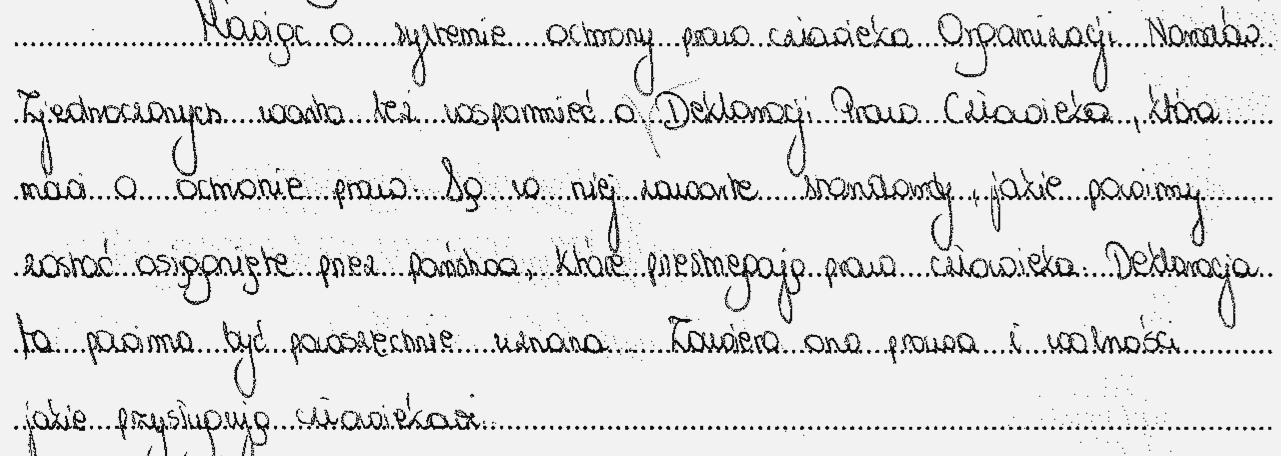 Mówiąc o systemie ochrony praw człowieka Organizacji Narodów
Zjednoczonych warto też wspomnieć o Deklaracji Praw Człowieka, która
mówi o ochronie praw. Są w niej zawarte standardy, jakie powinny
zostać osiągnięte przez państwa, które przestrzegają praw człowieka. Deklaracja
ta powinna być powszechnie uznana. Zawiera ona prawa i wolności
jakie przysługują człowiekowi.